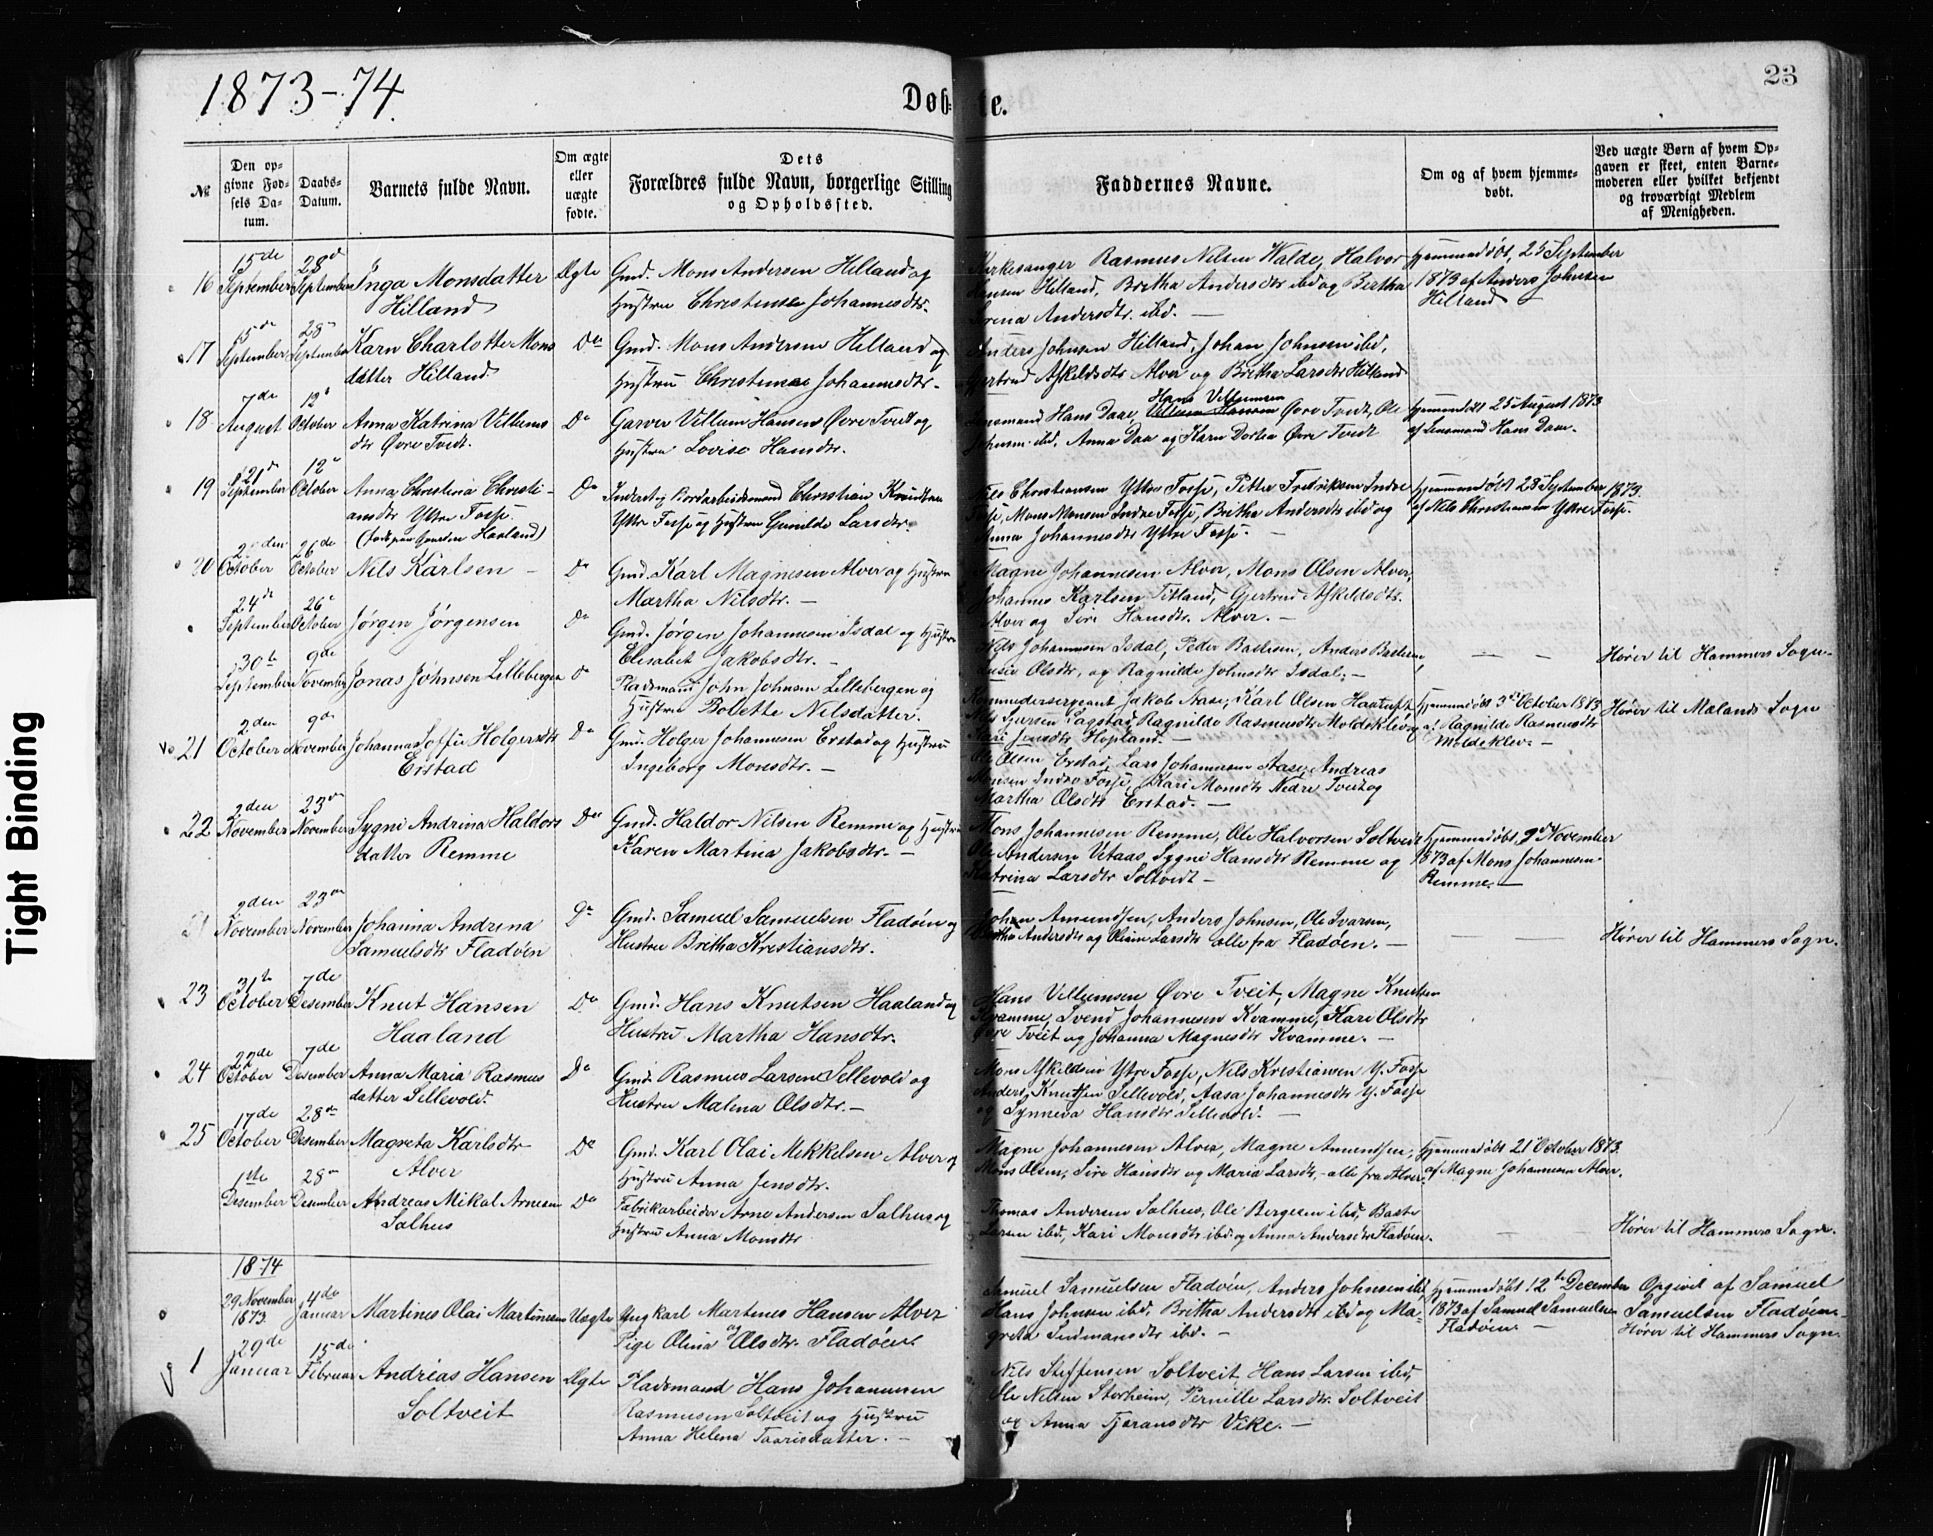 1873-74.
Døb-
te.
23
№
Den op-
givne Fød-
sels Da-
tum.
Daabs-
Datum.
Barnets fulde Navn.
Om ægte
eller
uægte
fødte.
Dets
Forældres fulde Navn, borgerlige Stilling
og Opholdssted.
Faddernes Navne.
Om og af hvem hjemme-
døbt.
Ved uægte Børn af hvem Op-
gaven er skeet, enten Barne-
moderen eller hvilket bekjendt
og troværdigt Medlem
af Menigheden.
16
15de
September
28de
September
Inga Monsdatter
Hilland
Ægte
Gmd. Mons Andersen Hilland og
Hustru Christense Johannesdtr.
Kirkesanger Rasmus Nilsen Walde, Halvor
Hansen Hilland, Britha Andersdtr ibd og Bertha
Serena Andersdtr. ibd. —
Hjemmedøbt, 25 September
1873 af Anders Johnsen
Hilland
17
15de
September
28de
September
Karn Charlotte Mons
datter Hilland
Do
Gmd. Mons Andersen Hilland og
Hustru Christense Johannesdtr.
Anders Johnsen Hilland, Johan Johnsen ibd,
Gjertrud Askildsdtr Alver og Britha Larsdtr Hilland
18
7de
August
12
October
Anna Katrina Villums
dtr Øvre Tvedt.
Do
Garver Villum Hansen Øvre Tvedt og
Hustru Lovise Hansdtr.
Hans Villumsen
Lensmand Hans Daae, Øvre Tvedt, Ole
Johnsen ibd, Anna Daa og Karn Dortea Øvre Tvedt
Hjemmedøbt 25 August 1873
af Lensmand Hans Daae.
19
21de
September
12
October
Anna Christina Christi-
ansdtr Yttre Fosse.
(Født paa Gaarden Haaland)
Do
Inderst og Bordarbeidsmand Christian Knudsen
Yttre Fosse og Hustru Gunilde Larsdtr.
Nils Christiansen Yttre Fosse, Petter Fredriksen Indre
Fosse, Mons Monsen Indre Fosse, Britha Andersdtr ibd og
Anna Johannesdtr Yttre Fosse. —
Hjemmedøbt 28 September 1873
af Nils Christiansen Yttre Fosse.
20
October
26de
October
Nils Karlsen —
Do
Gmd. Karl Magnesen Alver og Hustru
Martha Nilsdtr. —
Magne Johannesen Alver, Mons Olsen Alver,
Johannes Karlsen Titland, Gjertrud Askildsdtr.
Alver og Siri Hansdtr. Alver. —
24de
September
26
October
Jørgen Jørgensen
Do
Gmd. Jørgen Johannesen Isdal og Hustru
Elisabet Jakobsdtr. —
Nils Johannesen Isdal, Peder Bastesen, Anders Bastesen
Olsdtr, og Ragnilde Johnsdtr Isdal. —
— —
Hører til Hammers Sogn.
30te
September
9de
November
Jonas Johnsen Lillebergen
Do
Pladsmand John Johnsen Lillebergen og
Hustru Bolette Nilsdatter.
Kommandersergeant Jakob Aase, Karl Olsen Haatuft
Nils Iversen Fagstad, Ragnilde Rasmusdtr Moldeklev og
Kari Jonsdtr Hopland. —
Hjemmedøbt 3de October 1873
af Ragnilde Rasmusdtr
Moldeklev. —
Hører til Mælands Sogn
21
2den
October
9de
November
Johanna Soffie Holgersdtr
Erstad
Do
Gmd. Holger Johannesen Erstad og Hustru
Ingeborg Monsdtr. —
Ole Olsen Erstad, Lars Johannesen Aase, Andreas
Monsen Indre Fosse, Kari Monsdtr Nedre Tveit og
Martha Olsdtr Erstad. —
22
2den
November
23de
November
Sygni Andrina Haldors
datter Remme
Do
Gmd. Haldor Nilsen Remme og Hustru
Karen Martina Jakobsdtr. —
Mons Johannesen Remme, Ole Halvorsen Soltvedt
Ole Andersen Vetaas, Sygni Hansdtr Remme og
Katrina Larsdtr Soltvedt —
Hjemmedøbt, 9de November
1873 af Mons Johannesen
Remme. —
2den
November
23de
November
Johanna Andrina
Samuelsdtr Fladøen
Do
Gmd. Samuel Samuelsen Fladøen og
Hustru Britha Kristiansdtr.
Johan Amundsen, Anders Johnsen, Ole Ivarsen,
Britha Andersdtr og Oliane Larsdtr alle fra Fladøen. —
— —
Hører til Hammers Sogn.
23
31te
October
7de
Desember
Knut Hansen
Haaland
Do
Gmd. Hans Knutsen Haaland og
Hustru Martha Hansdtr.
Hans Villumsen Øvre Tveit, Magne Knutsen
Kvamme, Svend Johannesen Kvamme, Kari Olsdtr
Øvre Tveit og Johanna Magnesdtr Kvamme. —
24
22de
October
7de
Desember
Anna Maria Rasmus
datter Sellevold.
Do
Gmd. Rasmus Larsen Sellevold og
Hustru Malena Olsdtr. —
Mons Askildsen Yttre Fosse, Nils Kristiansen Y. Fosse
Anders Knutsen Sellevold, Aasa Johannesdtr Y. Fosse
og Synneva Hansdtr Sellevold. —
25
17de
October
28de
Desember
Magreta Karlsdtr
Alver
Do
Gmd. Karl Olai Mikkelsen Alver og
Hustru Anna Jensdtr.
Magne Johannesen Alver, Magne Amundsen,
Mons Olsen, Siri Hansdtr og Maria Larsdtr - alle fra Alver.
Hjemmedøbt 21 October 1873.
af Magne Johannesen Alver.
1ste
Desember
28de
Desember
Andreas Mikal Arnesen
Salhus
Do
Fabrikarbeider Arne Andersen Salhus og
Hustru Anna Monsdtr
Thomas Andersen Salhus, Ole Bergesen ibd, Baste
Larsen ibd, Kari Monsdtr ibd og Anna Andersdtr Fladøen.
— —
Hører til Hammers Sogn.
1874
29 November
1873
4de
Januar
Martines Olai Martinesen
Uægte
Ungkarl Martines Hansen Alver
og
Pige Olina Olsdtr. Fladøen
Samuel Samuelsen Fladøen, Anders Johnsen ibd,
Hans Johnsen ibd. Britha Andersdtr ibd og Ma-
greta ibd. —
Hjemmedøbt 12te December
1873 af Samuel Samuelsen
Fladøen. —
Opgivet af Samuel
Samuelsen Fladøen.
Hører til Hammers Sogn.
1
29de
Januar
15de
Februar
Andreas Hansen
Soltveit
Ægte
Pladsmand Hans Johannesen
Rasmusen Soltveit og Hustru
Anna Helena Taarisdatter. —
Nils Steffensen Soltveit, Hans Larsen ibd,
Ole Nilsen Storheim, Pernille Larsdtr. Soltveit
og Anna Tjøransdtr Vike. —
Tight Binding